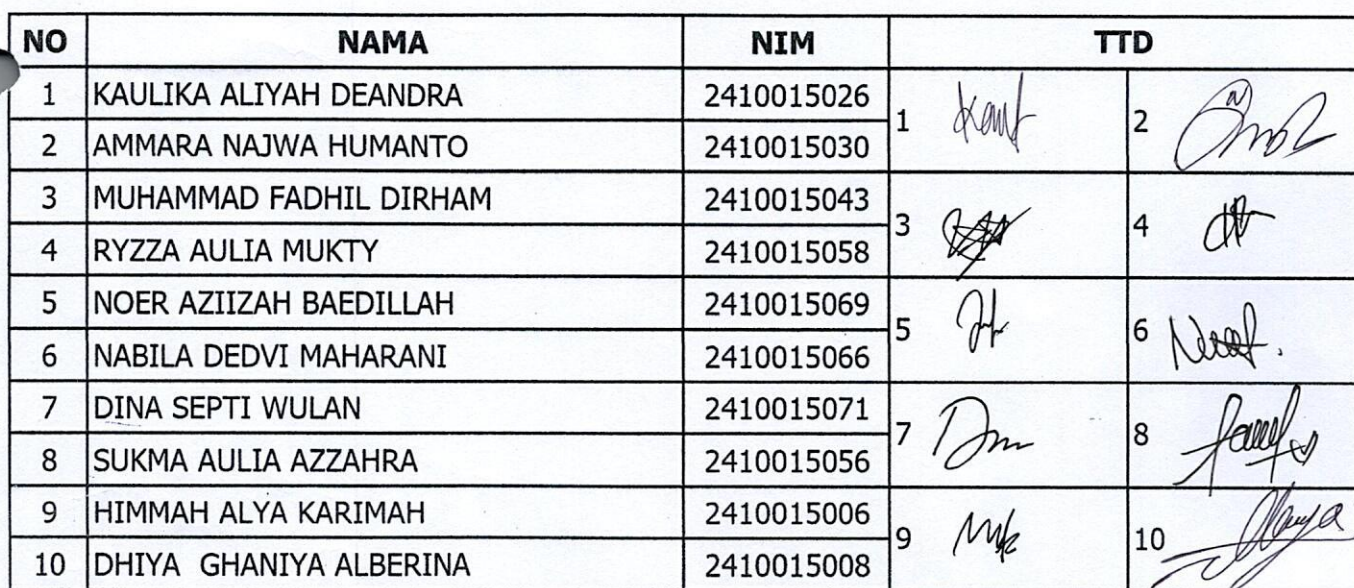 NO NAMA NIM TTD
1 KAULIKA ALIYAH DEANDRA 2410015026 1 2
2 AMMARA NAJWA HUMANTO 2410015030
3 MUHAMMAD FADHIL DIRHAM 2410015043 3 4
4 RYZZA AULIA MUKTY 2410015058
5 NOER AZIIZAH BAEDILLAH 2410015069 5 6
6 NABILA DEDVI MAHARANI 2410015066
7 DINA SEPTI WULAN 2410015071 7 8
8 SUKMA AULIA AZZAHRA 2410015056
9 HIMMAH ALYA KARIMAH 2410015006 9 10
10 DHIYA GHANIYA ALBERINA 2410015008